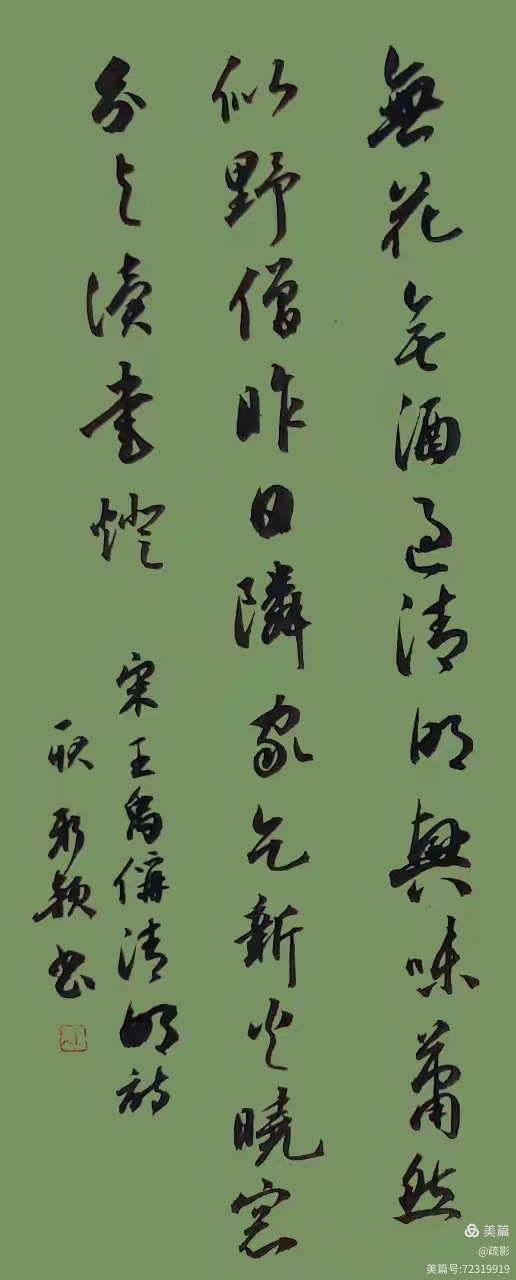 無花无酒過清明興味蕭然
似野僧昨日隣家乞新火曉窓
分与讀書燈
宋王禹偁清明詩
耿 穎書
美篇
@疏影
美篇号:72319919